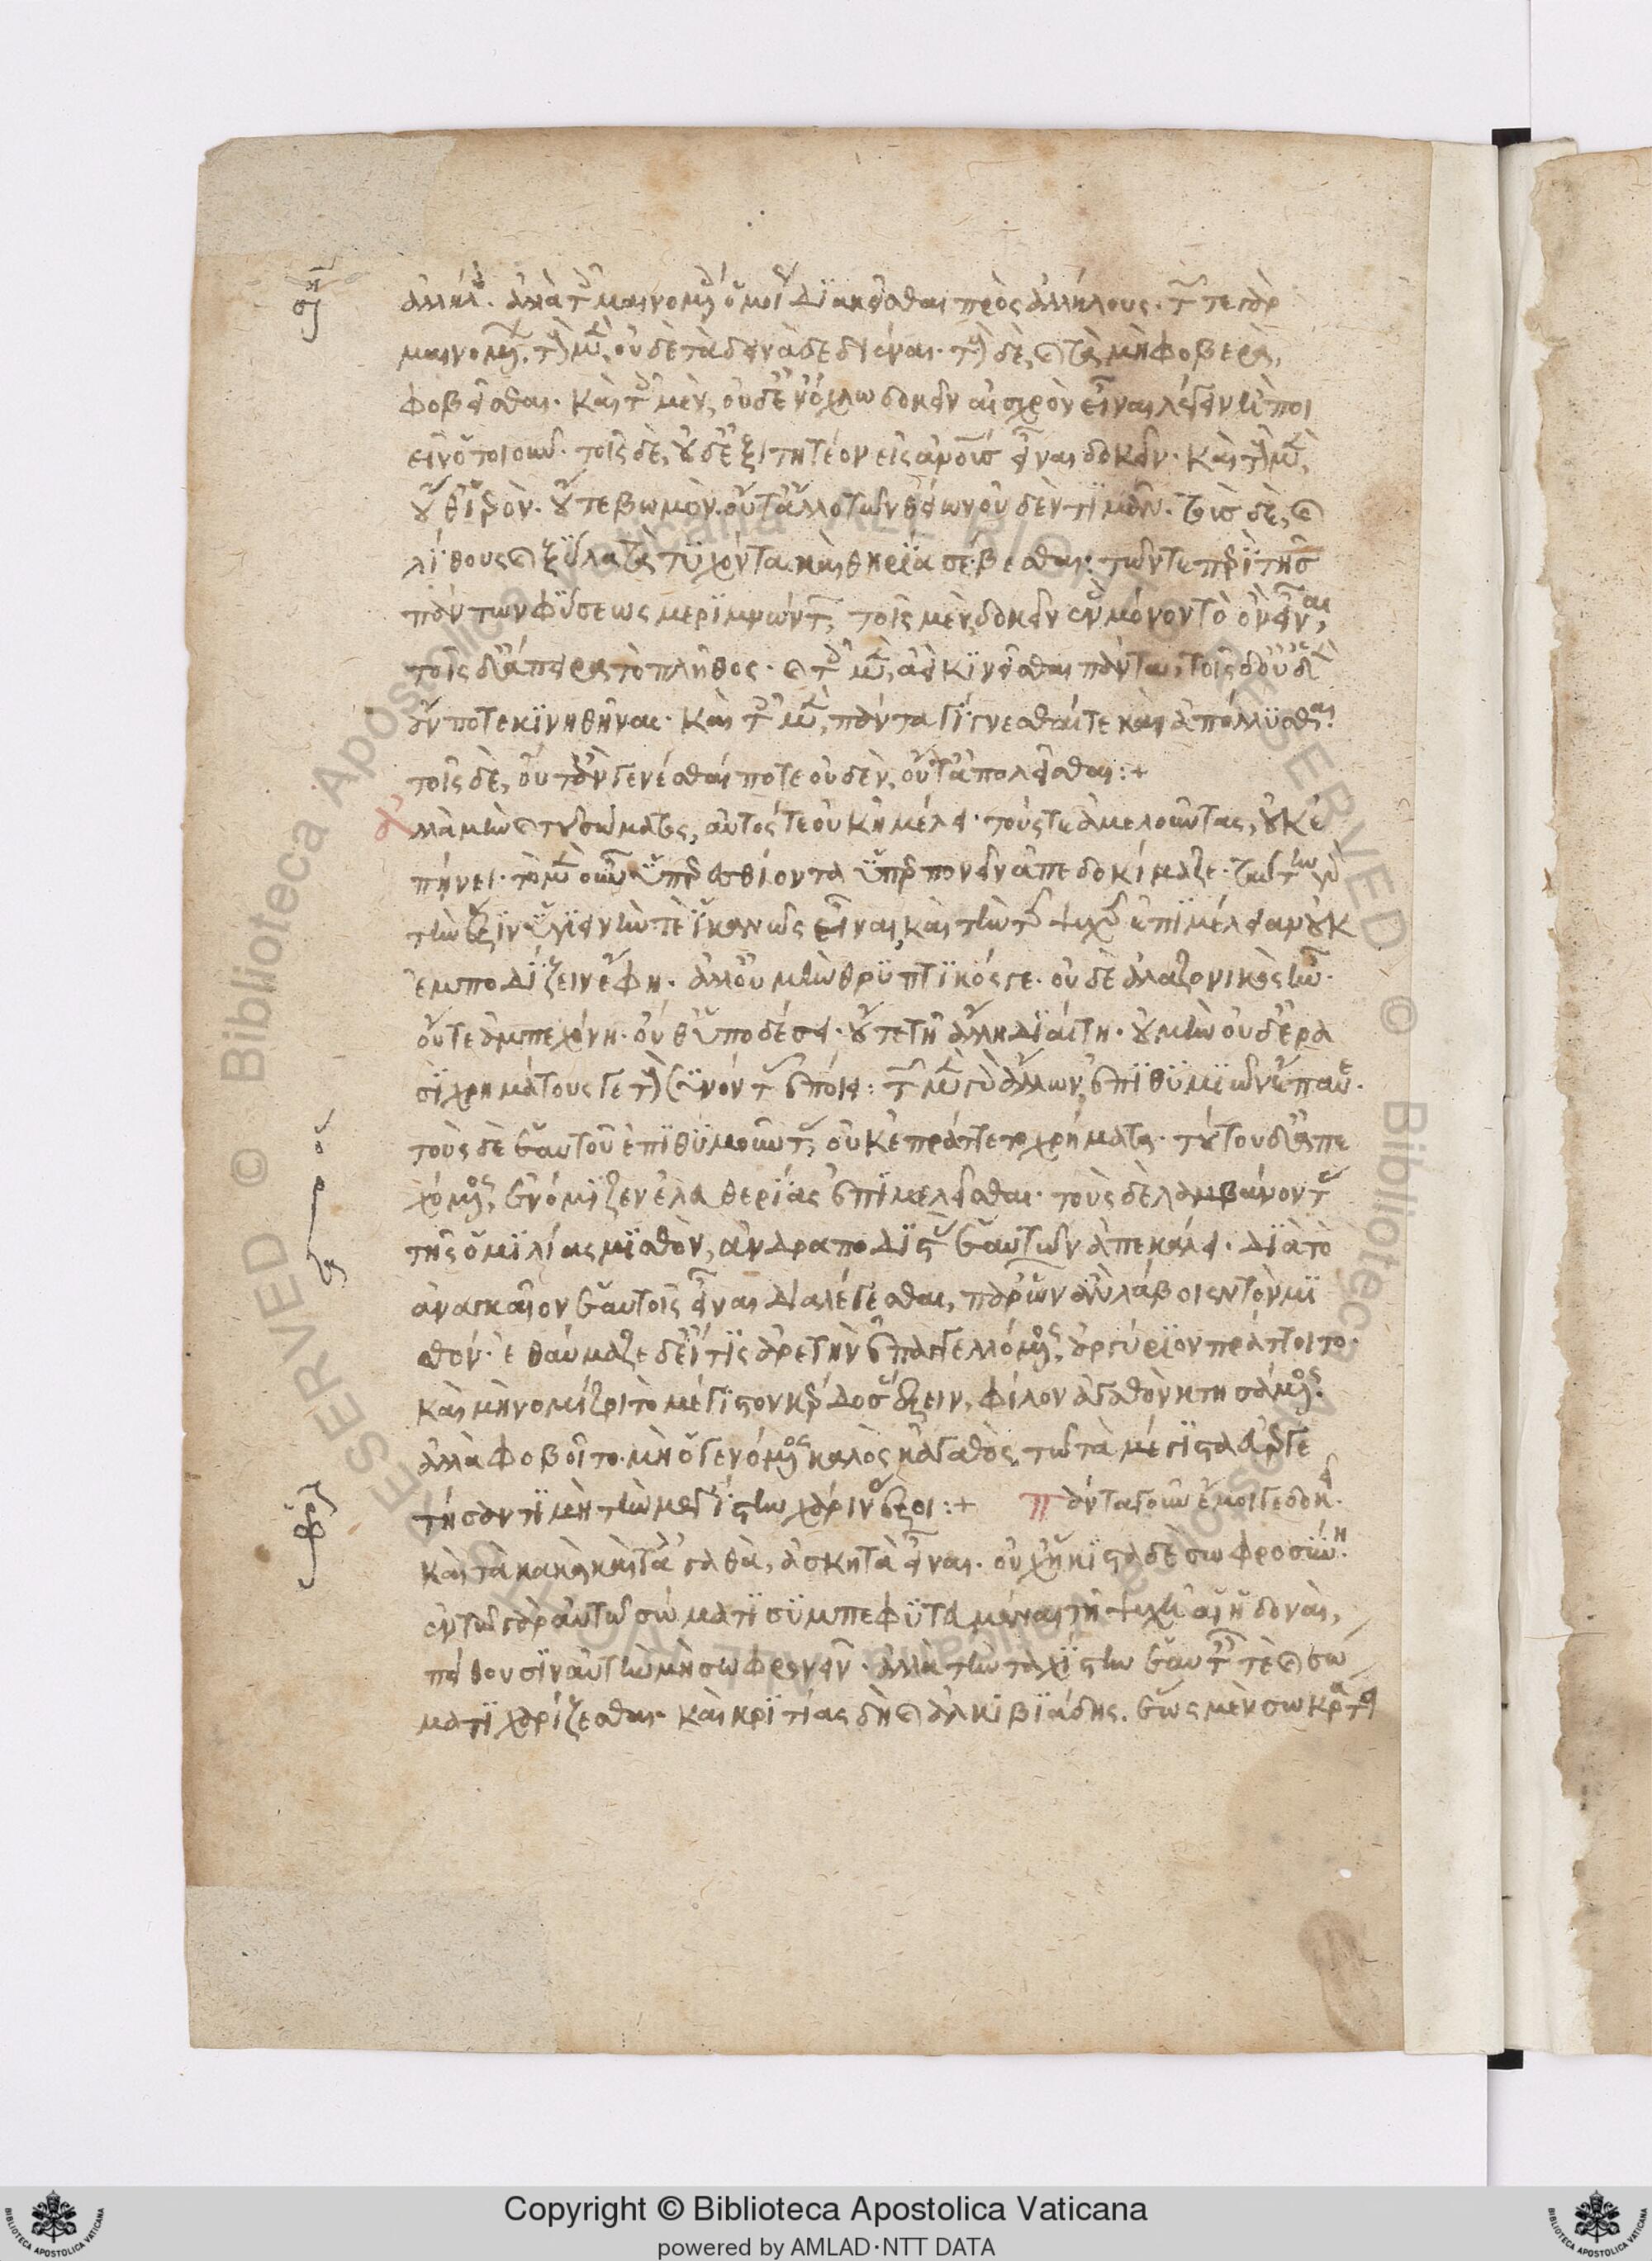 ἀλλήλοις. ἀλλὰ τοῖς μαινομένοις ὁμοίως διακεῖσθαι πρὸς ἀλλήλους. τῶν τε γὰρ
μαινομένων. τοὺς μὲν, οὐδὲ τὰ δεινὰ δεδιέναι. τοὺς δὲ, καὶ τὰ μὴ φοβερὰ,
φοβεῖσθαι. καὶ τοῖς μὲν, οὐδ' ἐν ὄχλω δοκεῖν αἰσχρὸν εἶναι λέγειν ἢ ποι
εῖν ὁτιοῦν. τοῖς δὲ, οὐδ' ἐξιτητέον εἰς ἀνθρώπους εἶναι δοκεῖν. καὶ τοὺς μὲν,
οὔθ' ἱερὸν. οὔτε βωμὸν. οὔτ' ἄλλο τῶν θείων οὐδὲν τιμᾶν. τοὺς δὲ, καὶ
λίθους καὶ ξύλα τὰ τυχόντα καὶ θηρία σέβεσθαι: τῶν τε περὶ τῆς
πάντων φύσεως μεριμνώντων, τοῖς μὲν, δοκεῖν ἓν μόνον τὸ ὂν εἶναι,
τοῖς δ' ἄπειρα τὸ πλῆθος. καὶ τοῖς μὲν, ἀεὶ κινεῖσθαι πάντα, τοῖς δ' οὐδὲν
ἄν ποτε κινηθῆναι. καὶ τοῖς μὲν, πάντα γίγνεσθαί τε καὶ ἀπόλλυσθαι.
τοῖς δὲ, οὔτ' ἂν γενέσθαί ποτε οὐδὲν, οὔτ' ἀπολεῖσθαι:+
ἀλλὰ μὴν καὶ τοῦ σώματος, αὐτός τε οὐκ ἠμέλει. τούς τ' ἀμελοῦντας, οὐκ ἐ
πήνει. τὸ μὲν οὖν ὑπερεσθίοντα ὑπερπονεῖν ἀπεδοκίμαζε.
τὴν ἕξιν ὑγιεινήν τε ἱκανῶς εἶναι, καὶ τὴν τῆς ψυχῆς ἐπιμέλειαν οὐκ
ἐμποδίζειν ἔφη. ἀλλ' οὐ μὴν θρυπτικός γε. οὐδὲ ἀλαζονικὸς ἦν.
οὔτε ἀμπεχόνη. οὔθ' ὑποδέσει. οὔτε τῆ ἄλλη διαίτη. οὐ μὴν οὐδ' ἐρα
σιχρημάτους γε τοὺς ξυνόντας ἐποίει: τῶν μὲν γὰρ ἄλλων ἐπιθυμιῶν ἔπαυε.
τοὺς δὲ ἑαυτοῦ ἐπιθυμοῦντας, οὐκ ἐπράττετο χρήματα. τούτου δ' ἀπε
χόμενος, ἐνόμιζεν ἐλευθερίας ἐπιμελεῖσθαι. τοὺς δὲ λαμβάνοντας
τῆς ὁμιλίας μισθὸν, ἀνδραποδιστὰς ἑαυτῶν ἀπεκάλει. διὰ τὸ
ἀναγκαῖον ἑαυτοῖς εἶναι διαλέγεσθαι, παρ' ὧν ἂν λάβοιεν τὸν μι
σθόν. ἐθαύμαζε δ' εἴ τις ἀρετὴν ἐπαγγελλόμενος, ἀργύριον πράττοιτο.
καὶ μὴ νομίζοι τὸ μέγιστον κέρδος ἕξειν, φίλον ἀγαθὸν κτησάμενος.
ἀλλὰ φοβοῖτο. μὴ ὁ γενόμενος καλὸς κἀγαθὸς, τῶ τὰ μέγιστα εὐεργε
τήσαντι μὴ τὴν μεγίστην χάριν ἕξοι:+ πάντα γοῦν ἔμοιγε δοκεῖ.
καὶ τὰ καλὰ καὶ τὰ ἀγαθὰ, ἀσκητὰ εἶναι. οὐχ ἥκιστα δὲ σωφροσύνη.
ἐν τῶ γὰρ αὐτῶ σώματι συμπεφυτευμέναι τῆ ψυχῆ αἱ ἡδοναὶ,
πείθουσιν αὐτὴν μὴ σωφρονεῖν. ἀλλὰ τὴν ταχίστην ἑαυταῖς τε καὶ σώ
ματι χαρίζεσθαι. καὶ κριτίας δὴ καὶ ἀλκιβιάδης. ἕως μὲν σωκράτει
Copyright © Biblioteca Apostolica Vaticana
powered by AMLAD·NTT DATA